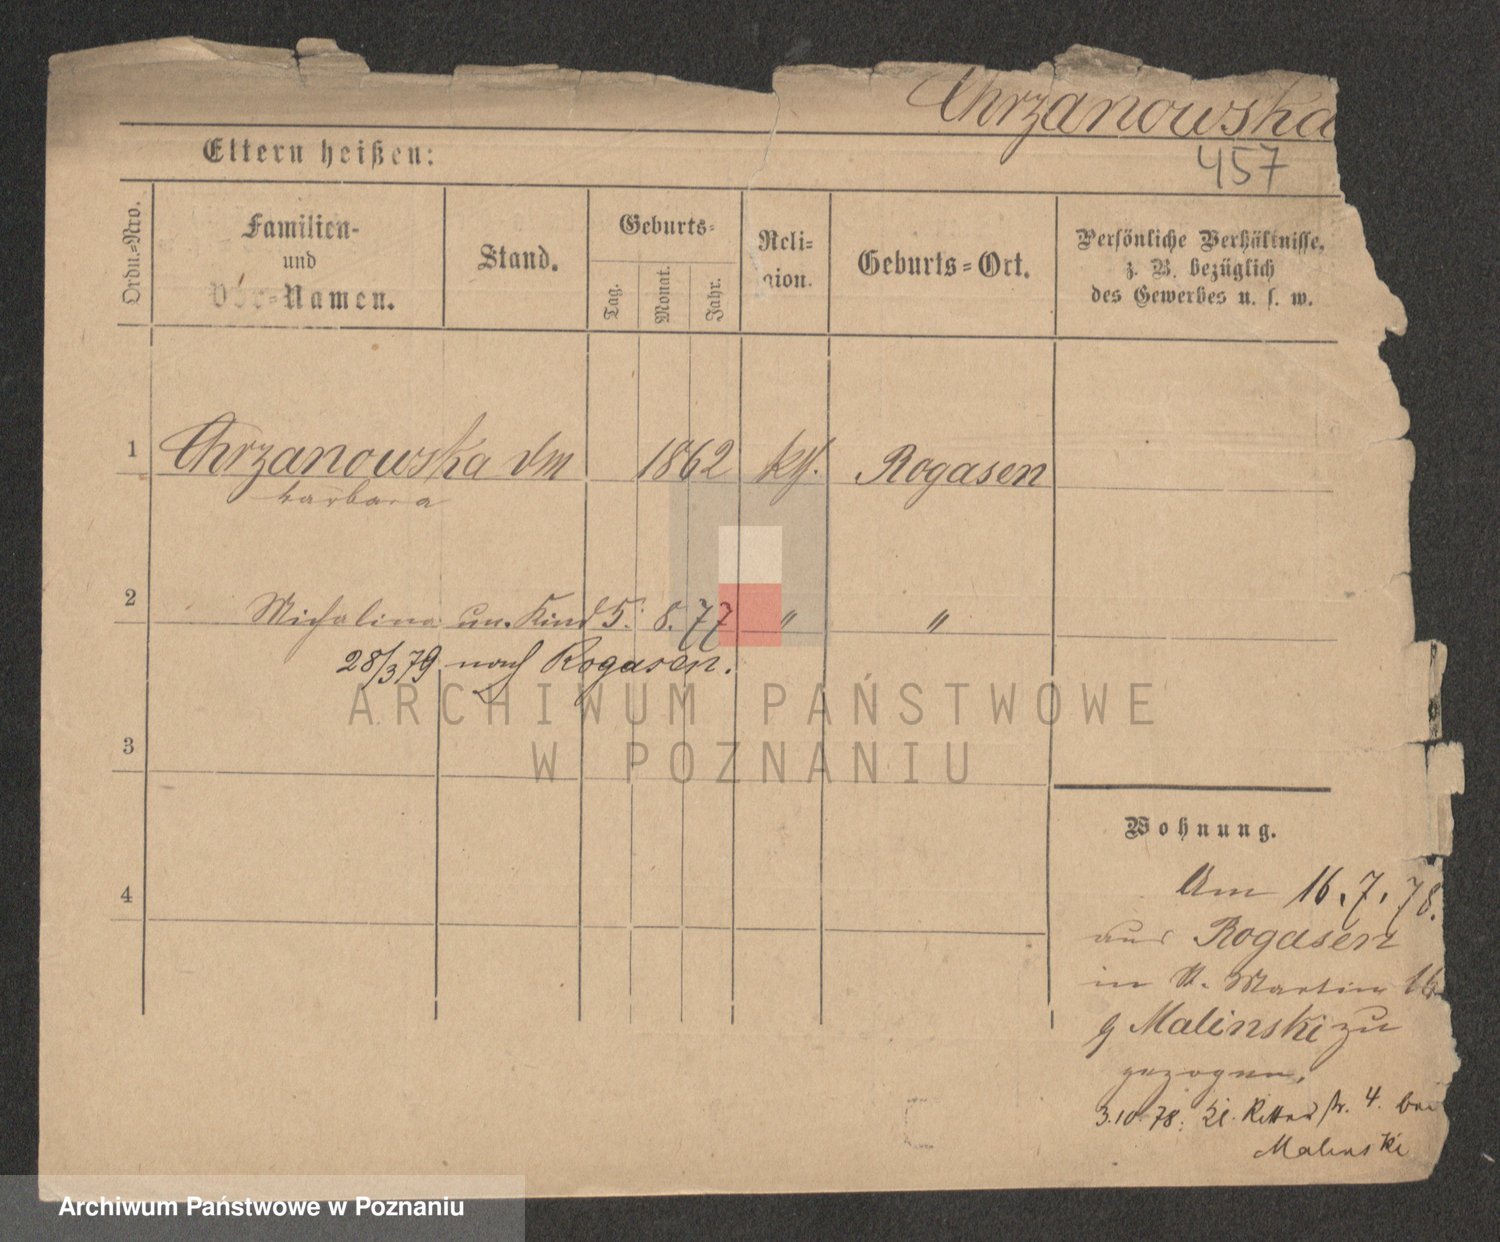 Chrzanowska
457
Eltern heißen:
Ordn.=Nro.
Familien-
und
Vor=Namen.
Stand.
Geburts=
Tag.
Monat.
Jahr.
Reli=
gion.
Geburts=Ort.
Persönliche Verhältnisse,
z. B. bezüglich
des Gewerbes u. s. w.
1 Chrzanowska 1862 kth. Rogasen
barbara
2 Michalina un. Kind 5. 8. 77 " "
28/3 79 nach Rogasen.
3
4
Wohnung.
Am 16.7.78.
aus Rogasen
in St. Martin 16
Malinski zu
gezogen.
3.10.78. kl. Ritter str. 4. bei
Malinski
ARCHIWUM PAŃSTWOWE
W POZNANIU
Archiwum Państwowe w Poznaniu